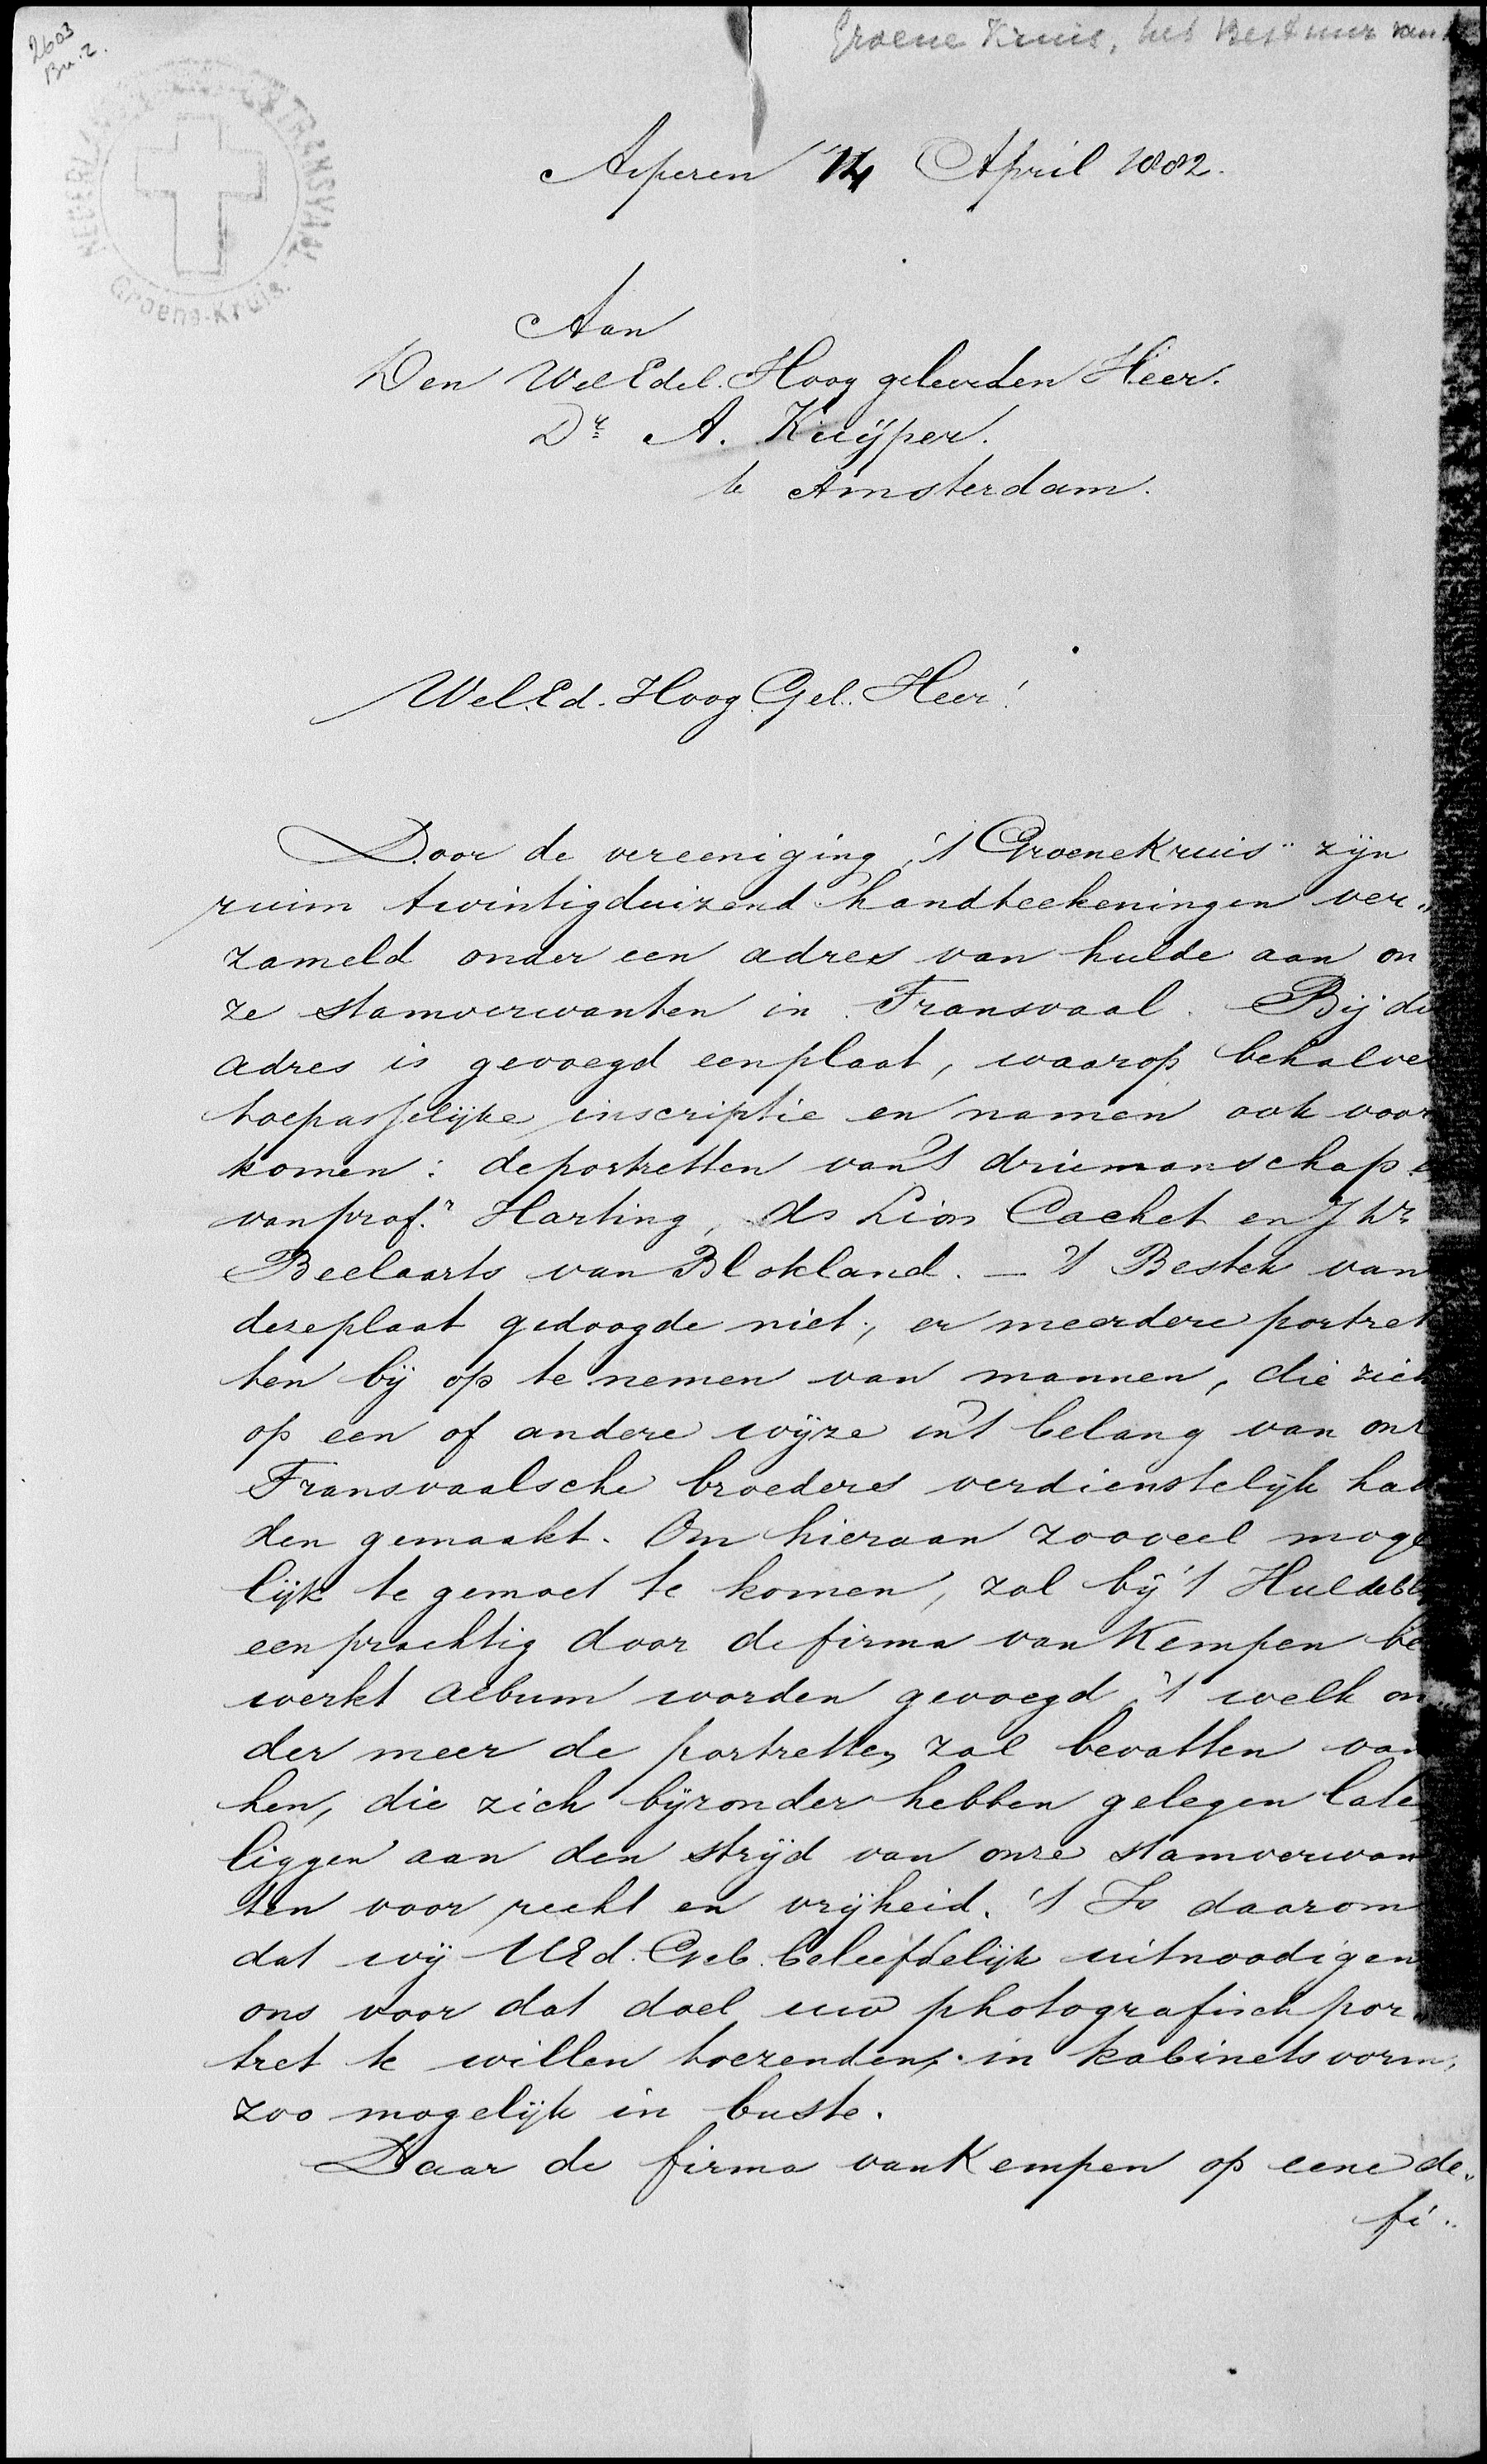 2603
Br. 2.
Groene Kruis, het Bestuur van
NEDERLANDSCH TRANSVAAL
Groene-Kruis.
Asperen 14 April 1882.
Aan
Den WelEdel. Hoog geleerden Heer.
Dr A. Kuÿper.
te Amsterdam.
Wel.Ed. Hoog.Gel. Heer!
Door de vereeniging „'t GroeneKruis" zijn
ruim twintigduizend handteekeningen ver„
zameld onder een adres van hulde aan on
ze stamverwanten in Transvaal. Bij di
adres is gevoegd een plaat, waarop behalve
toepasselijke inscriptie en namen ook voor
komen: de portretten van 't driemanschap e
van prof.r Harting, ds Lion Cachet en Jhr
Beelaarts van Blokland. – 't Bestek van
deze plaat gedoogde niet, er meerdere portret
ten bij op te nemen van mannen, die zich
op een of andere wijze in 't belang van onz
Transvaalsche broeders verdienstelijk had
den gemaakt. Om hieraan zooveel moge
lijk te gemoet te komen, zal bij 't Huldebl
een prachtig door de firma van Kempen be
werkt album worden gevoegd 't welk on
der meer de portretten zal bevatten van
hen, die zich bijzonder hebben gelegen laten
liggen aan den strijd van onze stamverwan
ten voor recht en vrijheid. 't Is daarom
dat wij UEd. Geb. beleefdelijk uitnoodigen
ons voor dat doel uw photografisch por„
tret te willen toezenden, in kabinetsvorm,
zoo mogelijk in buste.
Daar de firma van Kempen op eene de„
fi„